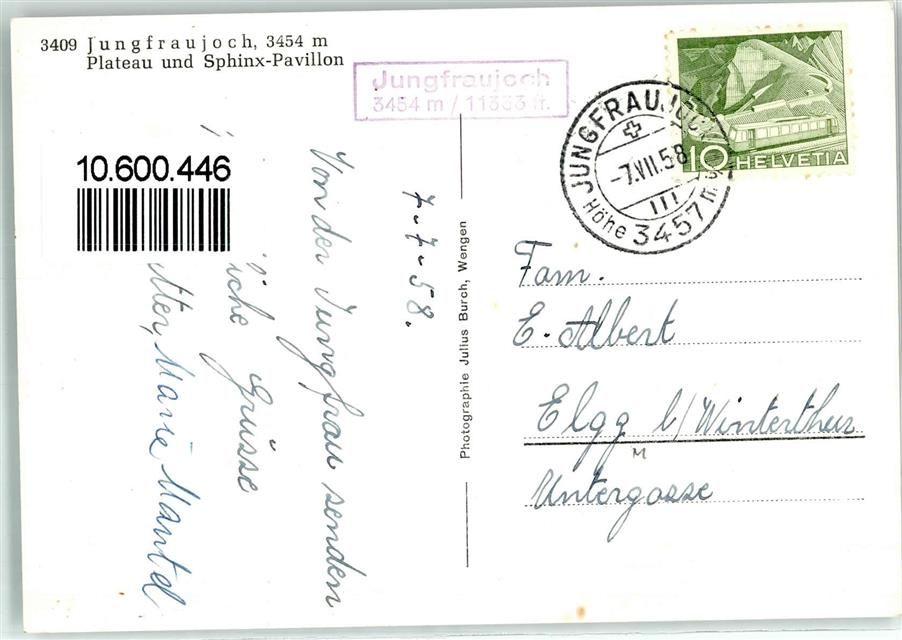 3409 Jungfraujoch, 3454 m
Plateau und Sphinx-Pavillon
Jungfraujoch
3454 m / 11333 ft.
10.600.446
7-7-58.
Von der Jungfrau senden
iche Grüsse
tter, Marie Mantel
Photographie Julius Burch, Wengen
JUNGFRAUJOCH
-7.VII.58
III
Höhe 3457 m
10 HELVETIA
Fam.
E. Albert
Elgg b/Winterthur
M
Untergasse